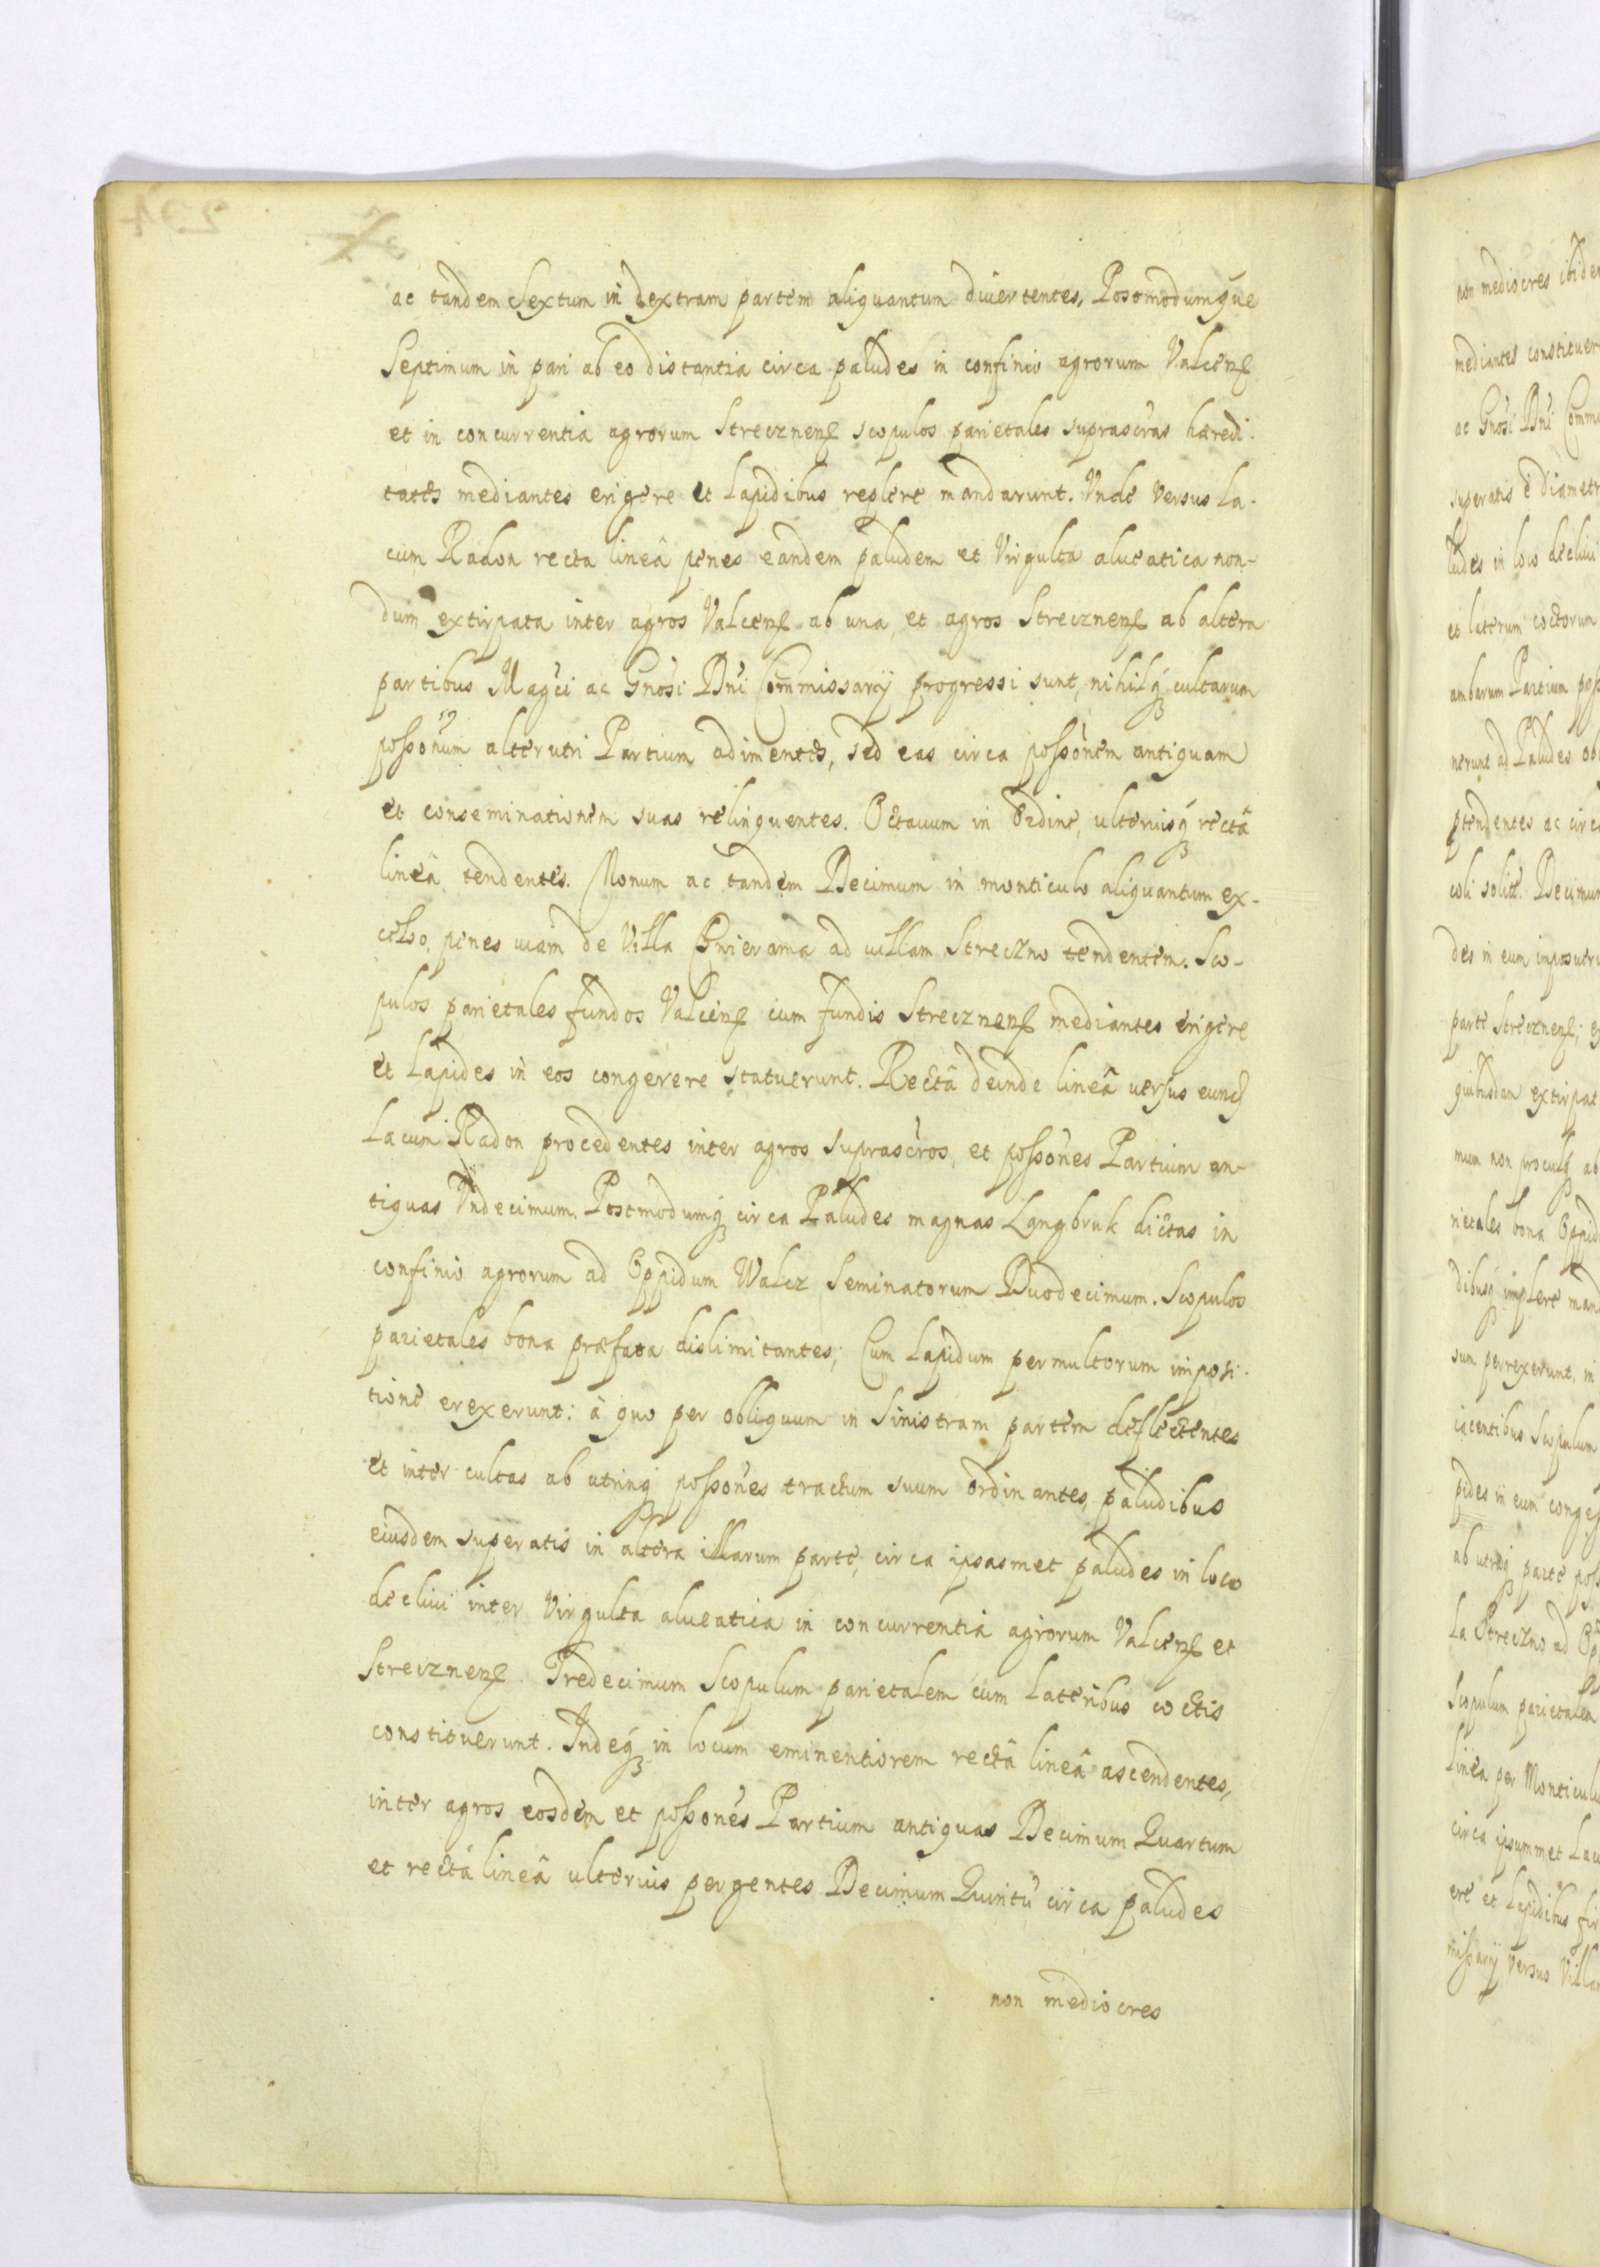 ac tandem Sextum in dextram partem aliquantum diuertentes, Postmodumque
Septimum in pari ab eo distantia circa paludes in confinio agrorum Valcen̄
et in concurrentia agrorum Strecznen̄ scopulos parietales suprascr̃as hæredi-
tates mediantes erigere et Lapidibus replere mandarunt. Vnde versus La-
cum Radon recta lineâ penes eandem paludem et Virgulta alueatica non-
dum extirpata inter agros Valcen̄ ab una, et agros Strecznen̄ ab altera
partibus Magci ac Gnosi Dni Commissarij progressi sunt, nihilq́ cultarum
possonũm alterutri Partium adimentes, sed eas circa possonem antiquam
et conseminationem suas relinquentes. Octauum in ordine, ulteriusq́ rectâ
lineâ tendentes. Nonum ac tandem Decimum in monticulo aliquantum ex-
celso, penes uiam de Villa ad uillam Streczno tendentem. Sco-
pulos parietales fundos Valcen̄ cum fundis Strecznen̄ mediantes erigere
et Lapides in eos congerere statuerunt. Rectâ deinde lineâ uersus eund
Lacum Radon procedentes inter agros suprascr̃os, et possones Partium an-
tiquas Vndecimum. Postmodumq́ circa Paludes magnas Langbruk dictas in
confinio agrorum ad Oppidum Walcz Seminatorum Duodecimum. Scopulos
parietales bona præfata dislimitantes; Cum Lapidum permultorum imposi-
tione erexerunt: à quo per obliquum in Sinistram partem deflectentes
et inter cultas ab utrinq́ possones tractum suum ordinantes, paludibus
eiusdem superatis in altera illarum parte, circa ipsasmet paludes in loco
decliui inter Virgulta alueatica in concurrentia agrorum Valcen̄ et
Strecznen̄. Tredecimum Scopulum parietalem cum Lateribus coctis
constituerunt. Indeq́ in locum eminentiorem rectâ lineâ ascendentes,
inter agros eosdem et possones Partium antiquas Decimum Quartum
et rectâ lineâ ulterius pergentes Decimum Quintũ circa paludes
non mediocres
non mediocres
mediantes
ac Gnosi Dni
superatis è
ludes in loco decliui
et laterum coctorum
ambarum Partium
nerunt ad Paludes
ptendentes ac
coli solite. Decimum
des in eum
parte Strecznen̄;
quibusdam
mum non proculq́ ab
rietales bona
dibusq́ implere
sum perrexerunt, in
iacentibus Scopulum
pides in eum
ab utraq́ parte
la Streczno ad
Scopulum parietalem
Linea per
circa ipsummet
ere et Lapidibus
missarij versus